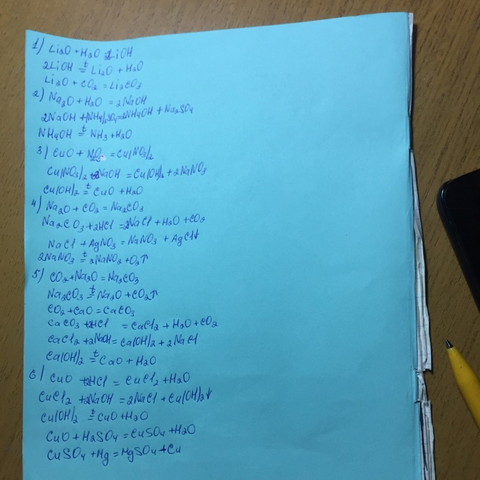 1) Li2O + H2O 2LiOH
2LiOH t= Li2O + H2O
Li2O + CO2 = Li2CO3
2) Na2O + H2O = 2NaOH
2NaOH + (NH4)2SO4 = 2NH4OH + Na2SO4
NH4OH t= NH3 + H2O
3) CuO + = Cu(NO3)2
Cu(NO3)2 + 2NaOH = Cu(OH)2 + 2NaNO3
Cu(OH)2 t= CuO + H2O
4) Na2O + CO2 = Na2CO3
Na2CO3 + 2HCl = 2NaCl + H2O + CO2
NaCl + AgNO3 = NaNO3 + AgCl↓
2NaNO3 t= 2NaNO2 + O2↑
5) CO2 + Na2O = Na2CO3
Na2CO3 t= Na2O + CO2↑
CO2 + CaO = CaCO3
CaCO3 + 2HCl = CaCl2 + H2O + CO2
CaCl2 + 2NaOH = Ca(OH)2 + 2NaCl
Ca(OH)2 t= CaO + H2O
6) CuO + 2HCl = CuCl2 + H2O
CuCl2 + 2NaOH = 2NaCl + Cu(OH)2↓
Cu(OH)2 t= CuO + H2O
CuO + H2SO4 = CuSO4 + H2O
CuSO4 + Mg = MgSO4 + Cu